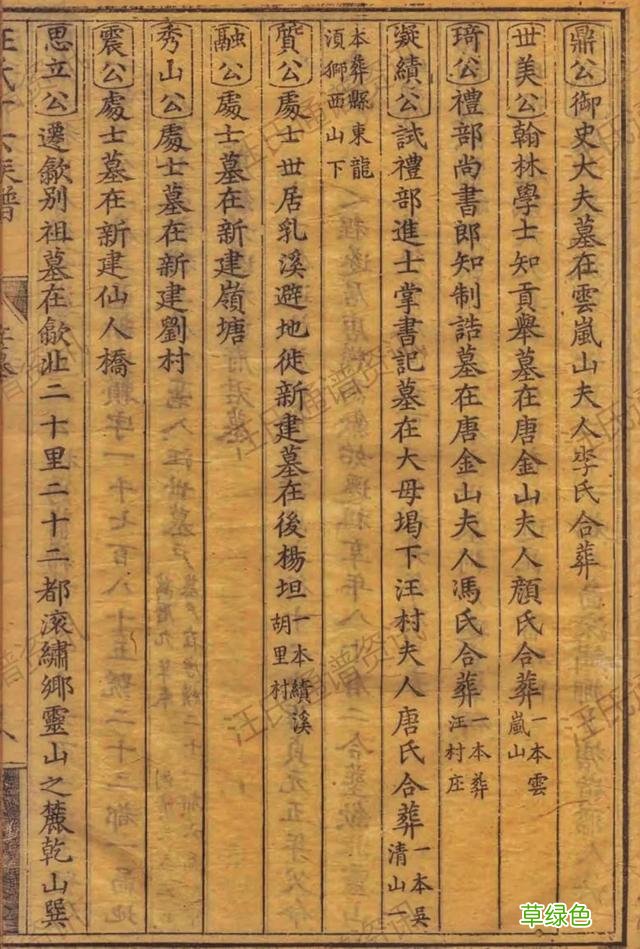 鼎公御史大夫墓在雲嵐山夫人李氏合葬
世美公翰林學士知貢舉墓在唐金山夫人顏氏合葬一本雲嵐山
琦公禮部尚書郎知制誥墓在唐金山夫人馮氏合葬一本葬汪村庄
凝績公試禮部進士掌書記墓在大母堨下汪村夫人唐氏合葬一本吳清山一
本葬縣東龍須獅西山下
質公處士世居乳溪避地徙新建墓在後楊坦一本績溪胡里村
融公處士墓在新建嶺塘
秀山公處士墓在新建劉村
震公處士墓在新建仙人橋
思立公遷歙別祖墓在歙北二十里二十二都滚繡鄉靈山之麓乾山巽
汪氏十六族譜
汪氏通谱资讯
草绿色